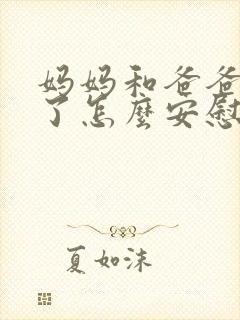 妈妈和爸爸
了怎麽安慰
夏如沫